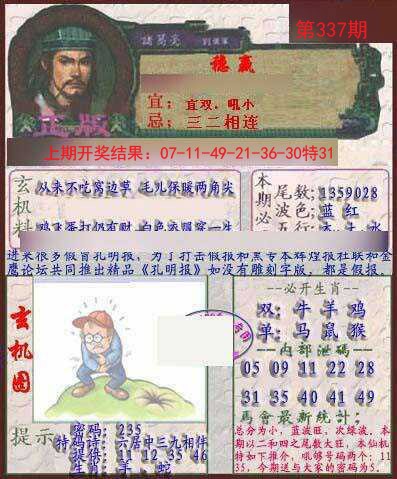 第337期
諸葛亮
劉伯溫
穩贏
宜：宜双．吼小
忌：三二相连
正版
上期开奖结果：07-11-49-21-36-30特31
玄机料
从来不吃窝边草 毛儿保暖两角尖
鸡飞蛋打仍有财
本期必
尾数;1359028
波色;蓝 红
五行
进来很多假冒孔明报，为了打击假报和黑专本辉煌报社联和金
鹰论坛共同推出精品《孔明报》如没有雕刻字版，都是假报。
玄机图
--必开生肖--
双：牛 羊 鸡
单：马 鼠 猴
--内部泄碼--
05 09 11 22 28
31 35 40 41 49
再會最新統計：
总分为小，蓝波旺，次绿波．本
期以二和四之尾数大旺，本仙机特
如下推介，吼够号码两个：11
35，今期送与大家的密码为5．
提示
密码：235
特码诗：六居中三九相伴
提供：11 12 35 46
生肖：羊、蛇